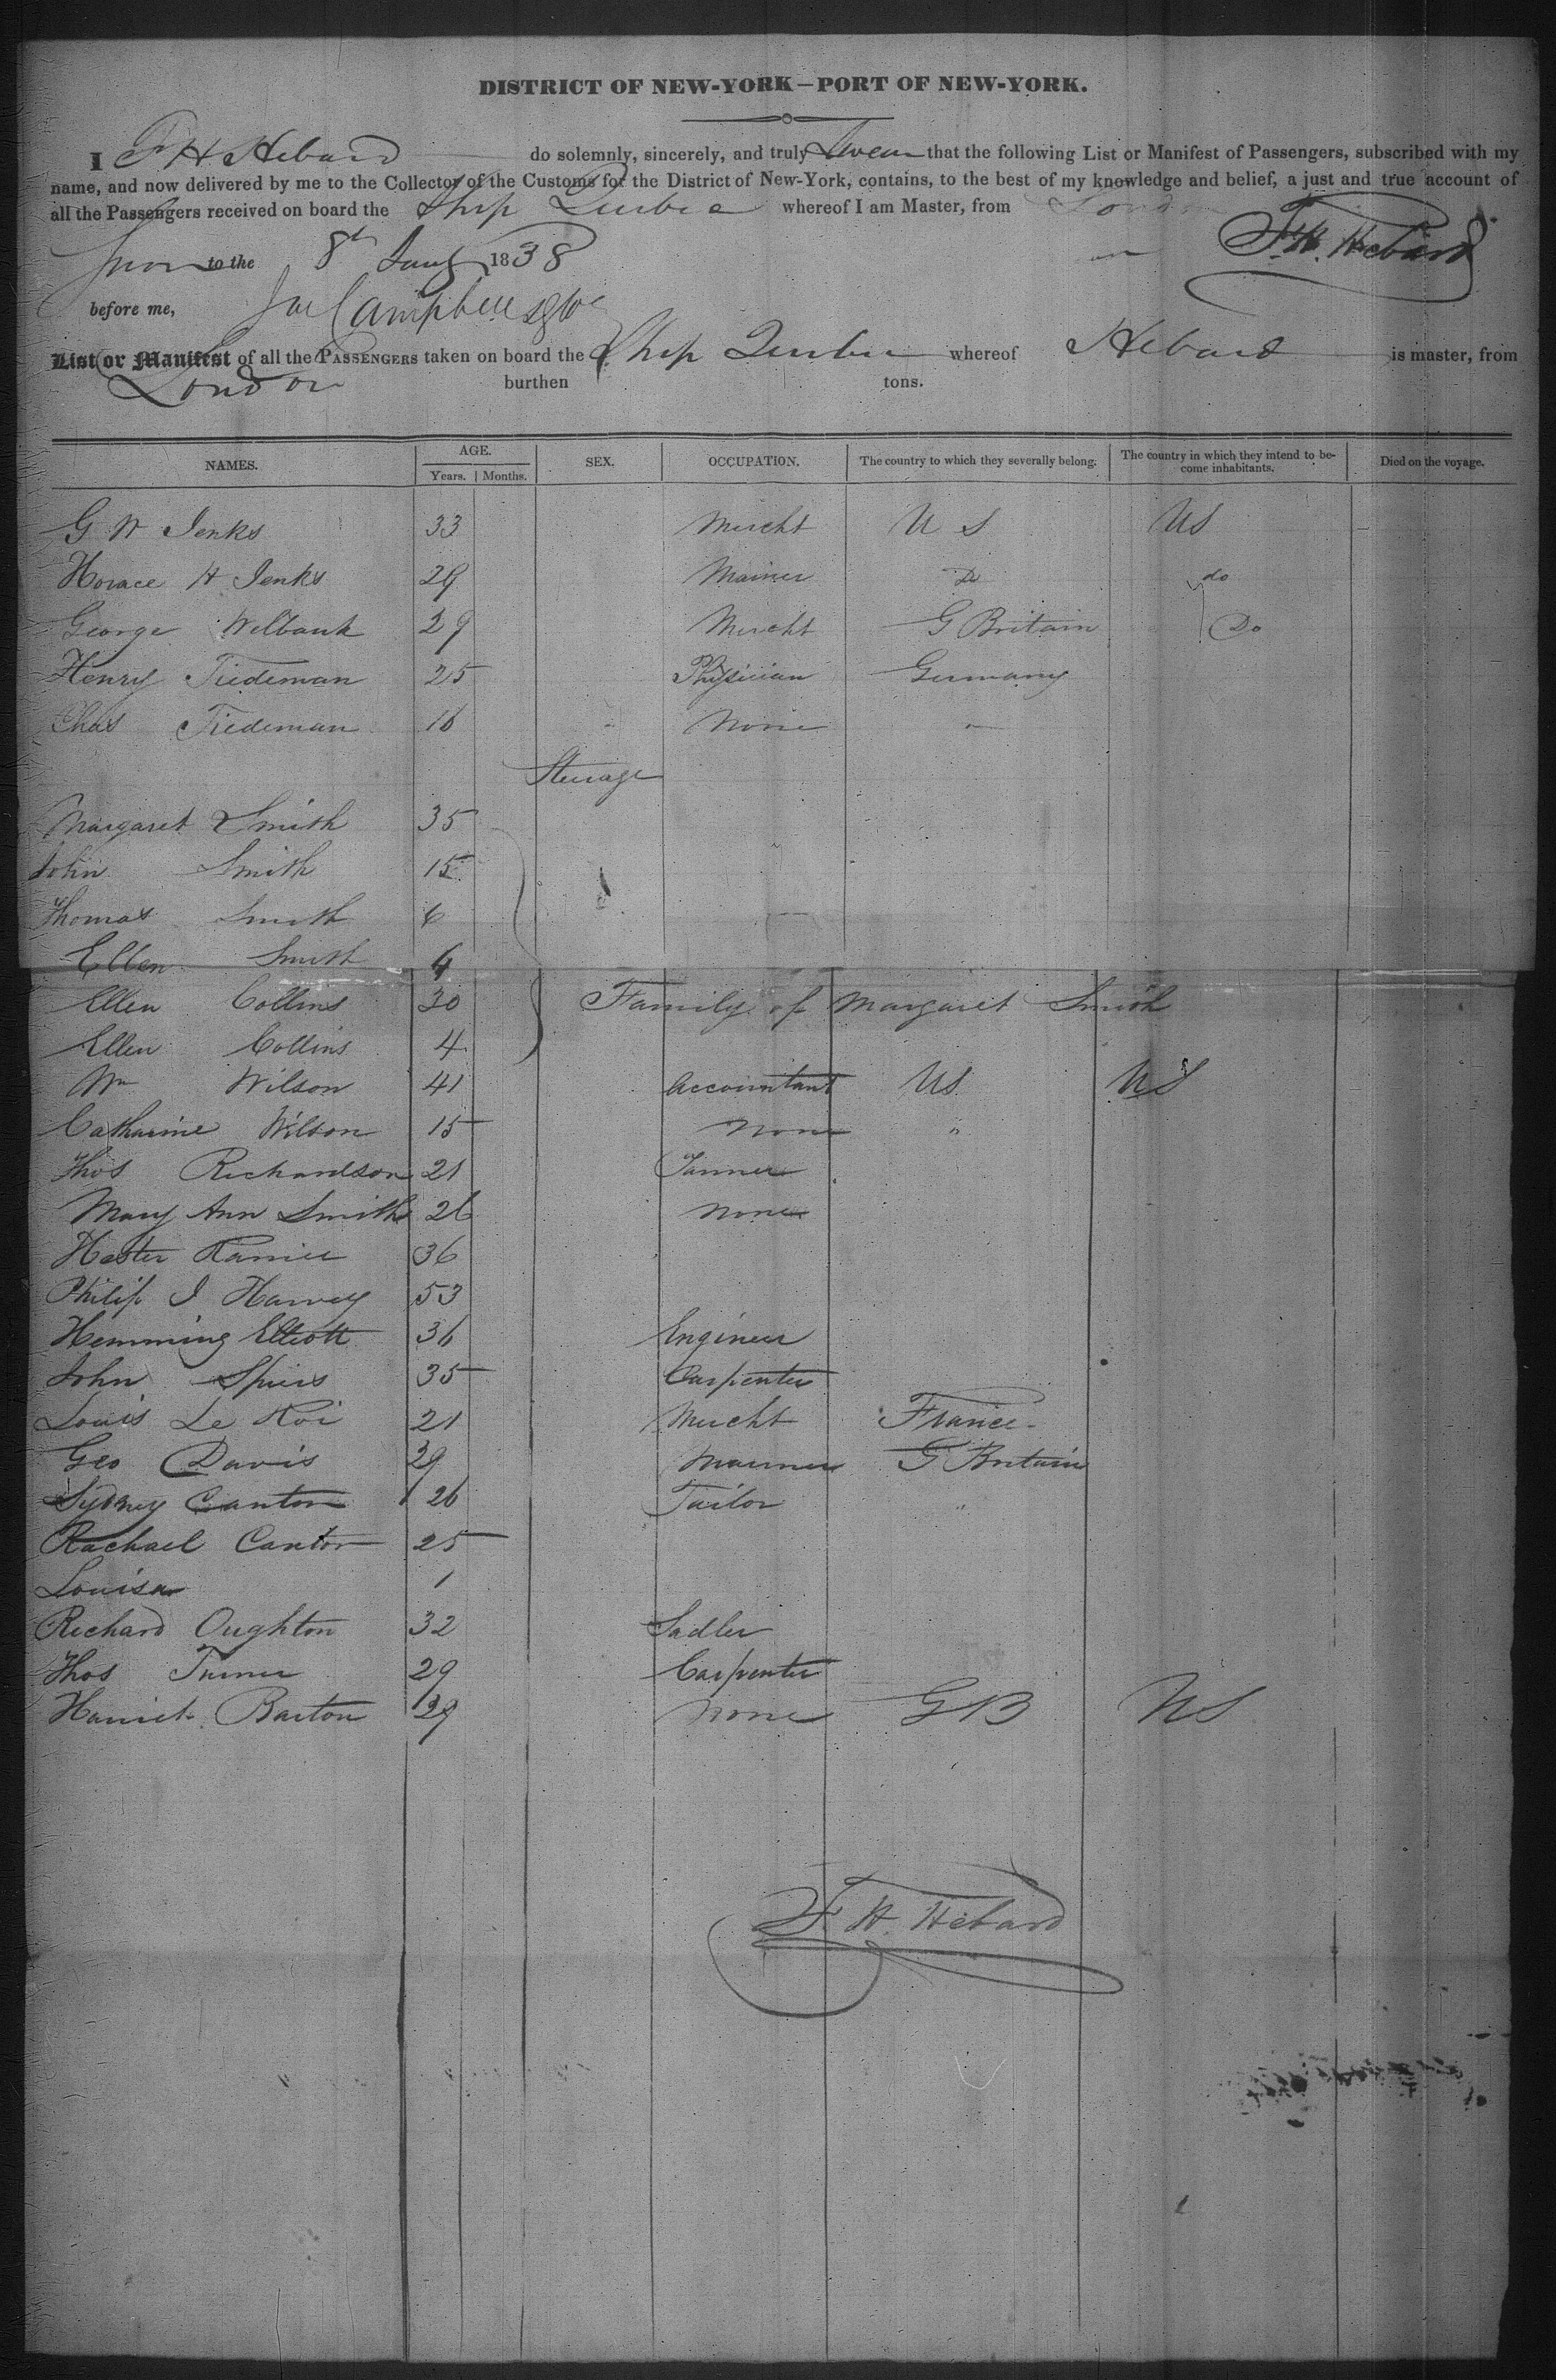 DISTRICT OF NEW-YORK—PORT OF NEW-YORK.
I F H Hebard do solemnly, sincerely, and truly Swear that the following List or Manifest of Passengers, subscribed with my
name, and now delivered by me to the Collector of the Customs for the District of New-York, contains, to the best of my knowledge and belief, a just and true account of
all the Passengers received on board the Ship whereof I am Master, from London
to the 8th 1838 F. H. Hebard
before me, Campbell
List or Manifest of all the PASSENGERS taken on board the Ship whereof Hebard is master, from
London burthen tons.
NAMES. AGE. Years. Months. SEX. OCCUPATION. The country to which they severally belong. The country in which they intend to become inhabitants. Died on the voyage.
G W Jenks 33 Mercht U S US
Horace H Jenks 29 Mariner Do do
George Welbank 29 Mercht G Britain Do
Henry Tiedeman 25 Physician Germany
Chas Tiedeman 16 None "
Steerage
Margaret Smith 35
John Smith 15
Thomas Smith 6
Ellen Smith 4
Ellen Collins 30 Family of Margaret Smith
Ellen Collins 4
Wm Wilson 41 Accountant US US
Catharine Wilson 15 None "
Thos Richardson 21 Tanner
Mary Ann Smith 26 None
Hester 36
Philip J Harvey 53
Hemming Elliott 36 Engineer
John Spiers 35 Carpenter
Louis Le Roi 21 Mercht France
Geo Davis 29 Mariner G Britain
Sydney Cantor 26 Tailor "
Rachael Cantor 25
Louisa 1
Richard Oughton 32 Sadler
Thos Turner 29 Carpenter
Harriet Barton 39 None GB US
F. H. Hebard